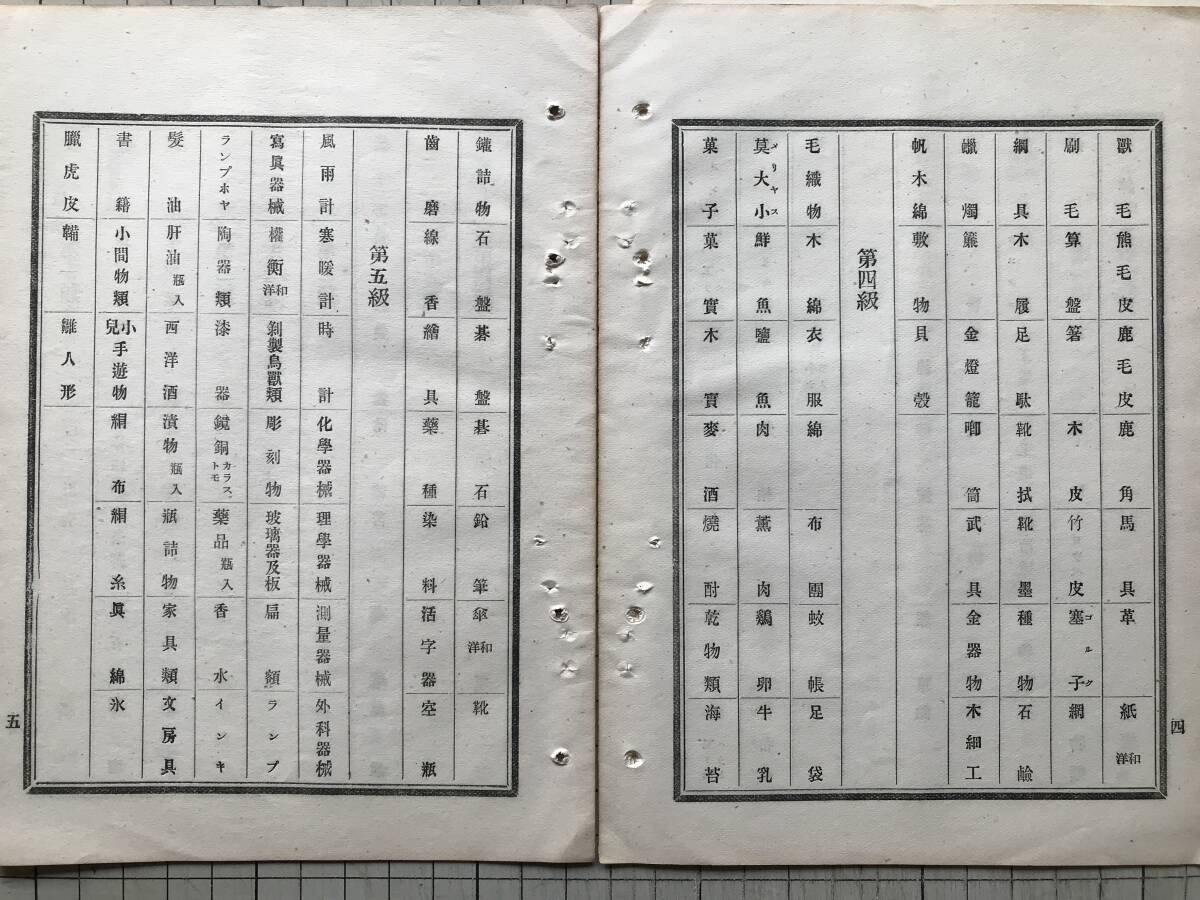 獸毛 熊毛皮 鹿毛皮 鹿角 馬具 革 紙和洋
刷毛 算盤 箸 木皮 竹皮 塞子コルク 網
綱具 木履 足駄 靴拭 靴墨 種物 石鹼
蠟燭 簾 金燈籠 喞筒 武具 金器物 木細工
帆木綿 敷物 貝殻
第四級
毛織物 木綿 衣服 綿 布團 蚊帳 足袋
莫大小メリヤス 鮮魚 鹽魚 肉 薫肉 鷄卵 牛乳
菓子 菓實 木實 麥酒 燒酎 乾物類 海苔
四
鑵詰物 石盤 碁盤 碁石 鉛筆 傘和洋 靴
齒磨 線香 繪具 藥種 染料 活字器 空瓶
第五級
風雨計 寒暖計 時計 化學器械 理學器械 測量器械 外科器械
寫眞器械 權衡和洋 剝製鳥獸類 彫刻物 玻璃器及板 扁額 ランプ
ランプホヤ 陶器類 漆器 鏡銅カラストモ 藥品瓶入 香水 インキ
髮油 肝油瓶入 西洋酒 漬物瓶入 瓶詰物 家具類 文房具
書籍 小間物類 小兒手遊物 絹布 絹糸 眞綿 氷
臘虎皮 鞴 雛人形
五